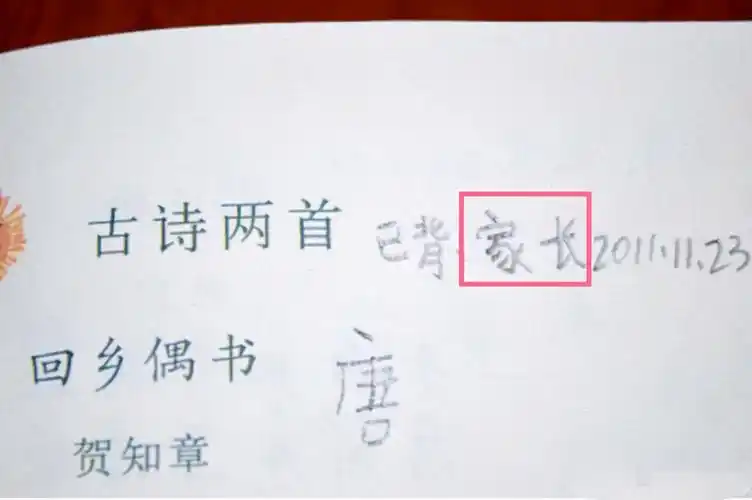 古诗两首 已背.家长2011.11.23
回乡偶书 唐
贺知章